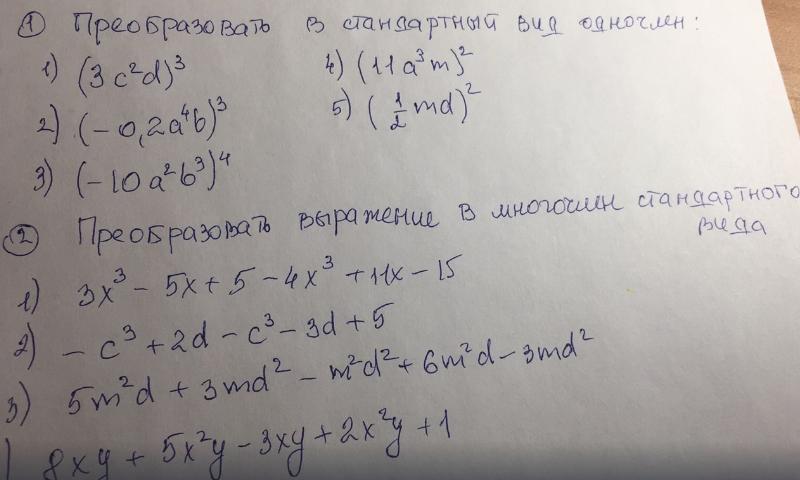 ① Преобразовать в стандартный вид одночлен:
1) (3c²d)³ 4) (11a³m)²
2) (-0,2a⁴b)³ 5) (1/2 md)²
3) (-10a²b³)⁴
② Преобразовать выражение в многочлен стандартного
вида
1) 3x³ - 5x + 5 - 4x³ + 11x - 15
2) - c³ + 2d - c³ - 3d + 5
3) 5m²d + 3md² - m²d² + 6m²d - 3md²
8xy + 5x²y - 3xy + 2x²y + 1